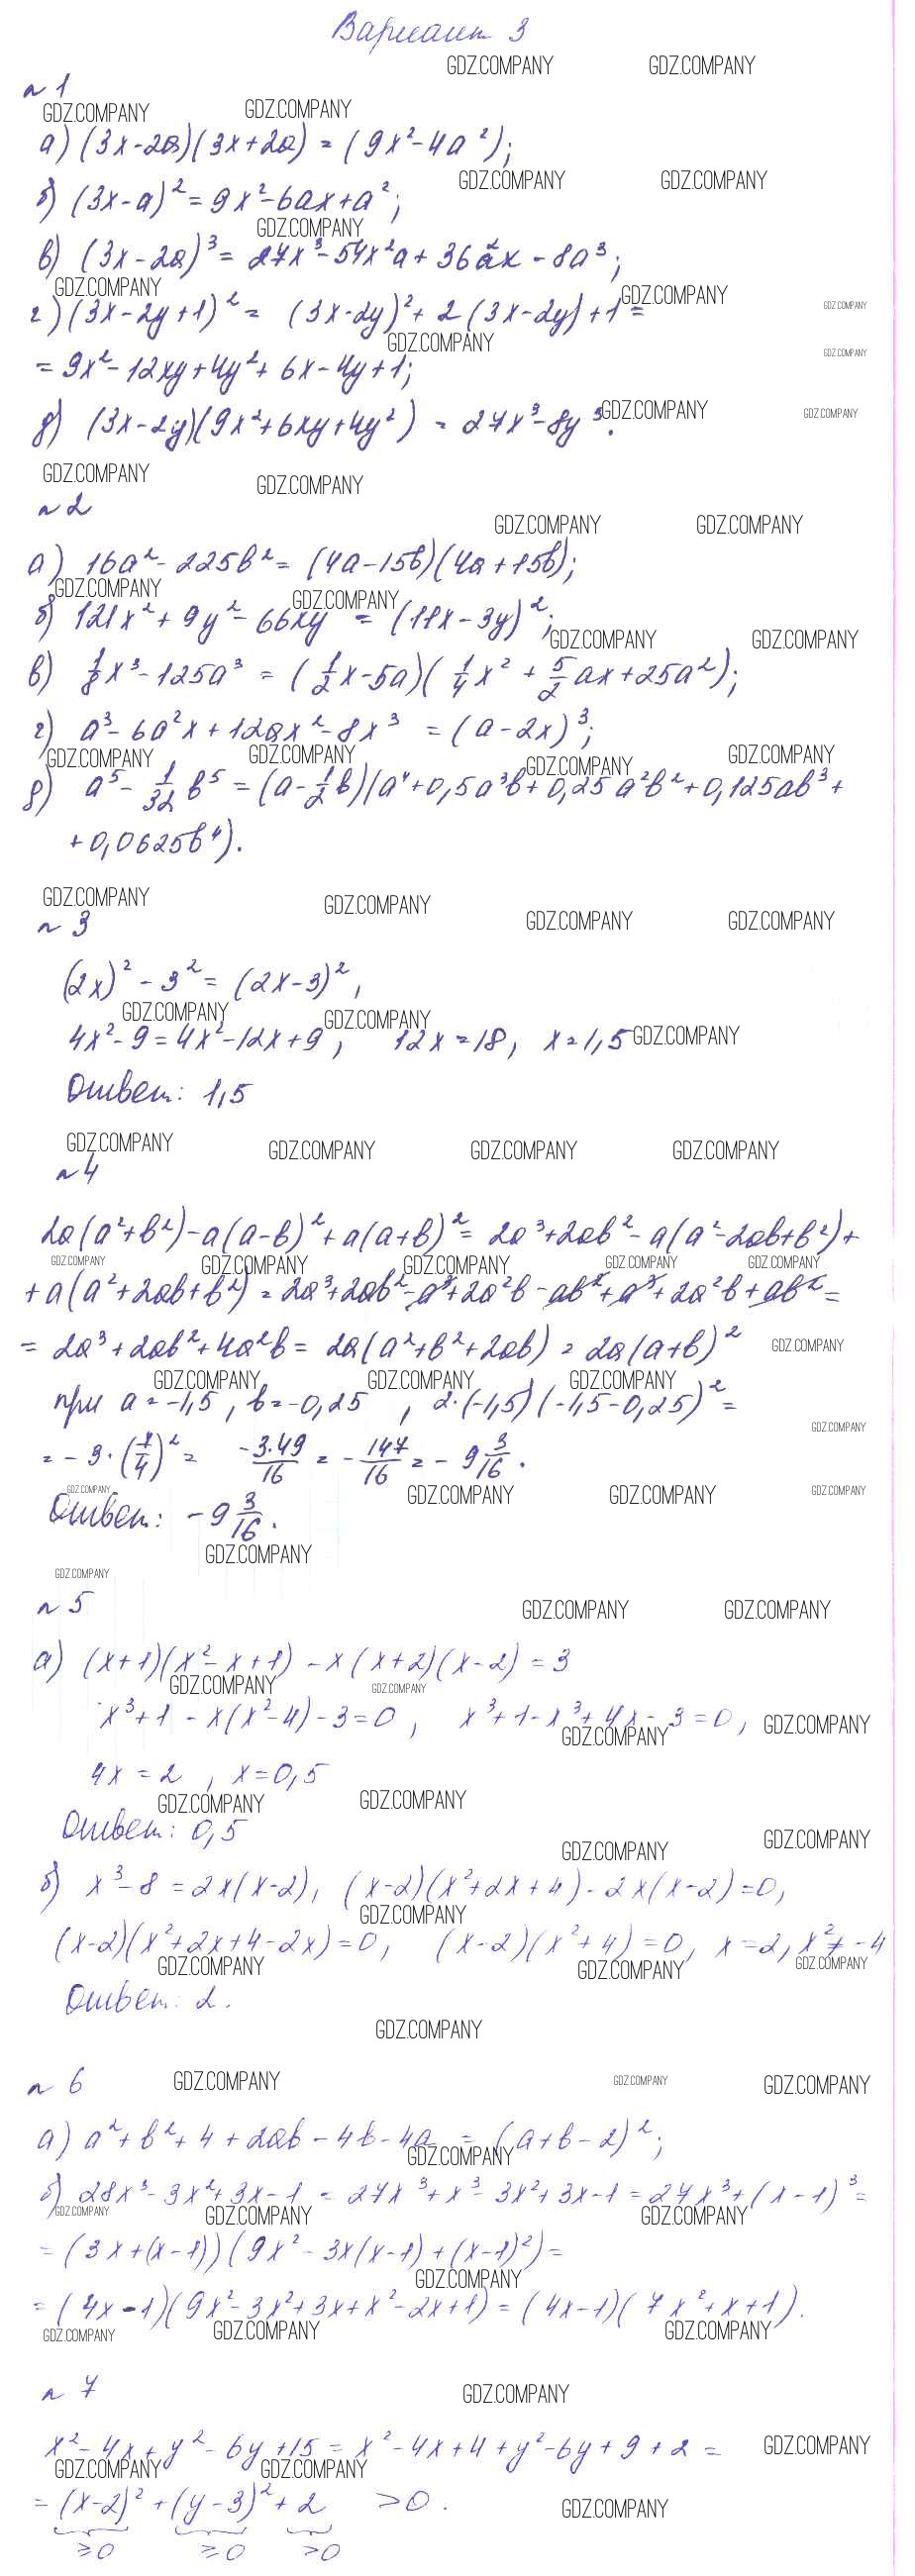 Вариант 3
GDZ.COMPANY GDZ.COMPANY
№ 1
GDZ.COMPANY GDZ.COMPANY
а) (3x-2a)(3x+2a) = (9x²-4a²);
GDZ.COMPANY GDZ.COMPANY
б) (3x-a)² = 9x²-6ax+a²;
GDZ.COMPANY
в) (3x-2a)³ = 27x³-54x²a+36a²x-8a³;
GDZ.COMPANY GDZ.COMPANY
г) (3x-2y+1)² = (3x-2y)²+2(3x-2y)+1 =
GDZ.COMPANY
GDZ.COMPANY GDZ.COMPANY
= 9x²-12xy+4y²+6x-4y+1;
GDZ.COMPANY GDZ.COMPANY
д) (3x-2y)(9x²+6xy+4y²) = 27x³-8y³.
GDZ.COMPANY GDZ.COMPANY
№ 2
GDZ.COMPANY GDZ.COMPANY
а) 16a²-225b² = (4a-15b)(4a+15b);
GDZ.COMPANY GDZ.COMPANY
б) 121x²+9y²-66xy = (11x-3y)²;
GDZ.COMPANY GDZ.COMPANY
в) 1/8x³-125a³ = (1/2x-5a)(1/4x²+5/2ax+25a²);
г) a³-6a²x+12ax²-8x³ = (a-2x)³;
GDZ.COMPANY GDZ.COMPANY GDZ.COMPANY GDZ.COMPANY
д) a⁵-1/32b⁵ = (a-1/2b)(a⁴+0,5a³b+0,25a²b²+0,125ab³+
+0,0625b⁴).
GDZ.COMPANY GDZ.COMPANY
№ 3
GDZ.COMPANY GDZ.COMPANY
(2x)²-3² = (2x-3)²,
GDZ.COMPANY GDZ.COMPANY
4x²-9 = 4x²-12x+9, 12x = 18, x = 1,5 GDZ.COMPANY
Ответ: 1,5
GDZ.COMPANY GDZ.COMPANY GDZ.COMPANY GDZ.COMPANY
№ 4
2a(a²+b²)-a(a-b)²+a(a+b)² = 2a³+2ab²-a(a²-2ab+b²)+
GDZ.COMPANY GDZ.COMPANY GDZ.COMPANY GDZ.COMPANY GDZ.COMPANY
+a(a²+2ab+b²) = 2a³+2ab²-a³+2a²b-ab²+a³+2a²b+ab² =
= 2a³+2ab²+4a²b = 2a(a²+b²+2ab) = 2a(a+b)² GDZ.COMPANY
GDZ.COMPANY GDZ.COMPANY GDZ.COMPANY
при a = -1,5, b = -0,25, 2·(-1,5)(-1,5-0,25)² =
GDZ.COMPANY
= -3·(7/4)² = -3·49/16 = -147/16 = -9 3/16.
GDZ.COMPANY GDZ.COMPANY GDZ.COMPANY GDZ.COMPANY
Ответ: -9 3/16.
GDZ.COMPANY
GDZ.COMPANY
№ 5 GDZ.COMPANY GDZ.COMPANY
а) (x+1)(x²-x+1)-x(x+2)(x-2) = 3
GDZ.COMPANY GDZ.COMPANY
x³+1-x(x²-4)-3=0, x³+1-x³+4x-3=0, GDZ.COMPANY
GDZ.COMPANY
4x = 2, x = 0,5
GDZ.COMPANY GDZ.COMPANY
Ответ: 0,5
GDZ.COMPANY GDZ.COMPANY
б) x³-8 = 2x(x-2), (x-2)(x²+2x+4)-2x(x-2)=0,
GDZ.COMPANY
(x-2)(x²+2x+4-2x)=0, (x-2)(x²+4)=0, x=2, x²≠-4
GDZ.COMPANY GDZ.COMPANY GDZ.COMPANY
Ответ: 2.
GDZ.COMPANY
№ 6 GDZ.COMPANY GDZ.COMPANY GDZ.COMPANY
а) a²+b²+4+2ab-4b-4a = (a+b-2)²;
GDZ.COMPANY
б) 28x³-3x²+3x-1 = 27x³+x³-3x²+3x-1 = 27x³+(x-1)³ =
GDZ.COMPANY GDZ.COMPANY GDZ.COMPANY
= (3x+(x-1))(9x²-3x(x-1)+(x-1)²) =
GDZ.COMPANY
= (4x-1)(9x²-3x²+3x+x²-2x+1) = (4x-1)(7x²+x+1).
GDZ.COMPANY GDZ.COMPANY GDZ.COMPANY
№ 7 GDZ.COMPANY
x²-4x+y²-6y+15 = x²-4x+4+y²-6y+9+2 = GDZ.COMPANY
GDZ.COMPANY GDZ.COMPANY
= (x-2)²+(y-3)²+2 >0. GDZ.COMPANY
≥0 ≥0 >0